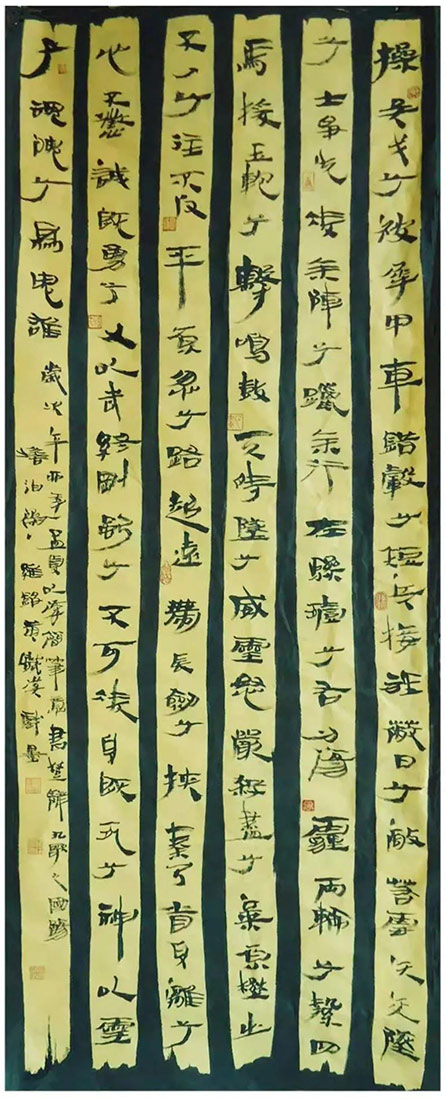 操吴戈兮被犀甲車錯轂兮短兵接旌蔽日兮敵若雲矢交墜
兮士争先凌余陣兮躐余行左驂殪兮右刃傷霾兩輪兮縶四
馬援玉枹兮擊鳴鼓天時墜兮威靈怒嚴殺盡兮棄原壄出
不入兮往不反平原忽兮路超遠帶長劍兮挾秦弓首身離兮
心不懲誠既勇兮又以武終剛強兮不可凌身既死兮神以靈
子魂魄兮為鬼雄 歲次 孟夏以 簡筆 書楚辭九歌之國殤